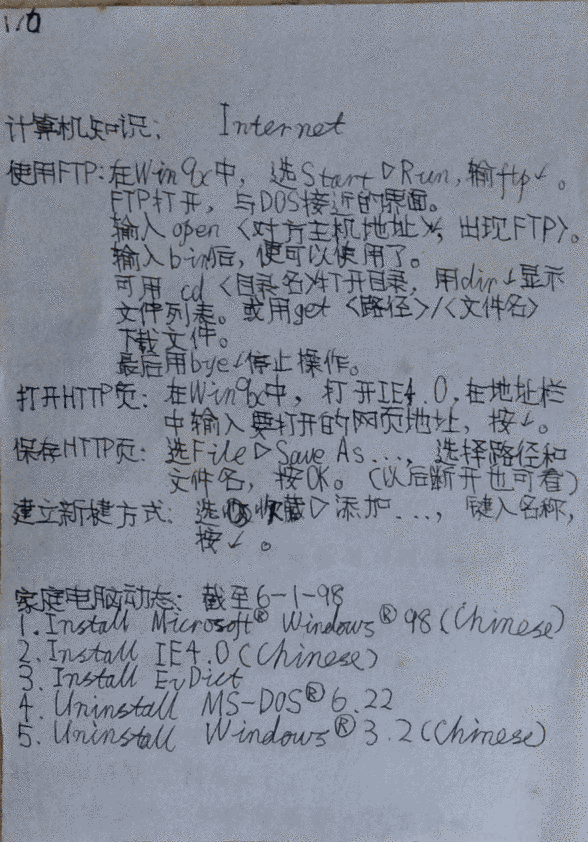 计算机知识: Internet
使用FTP:在Win9x中,选Start▷Run,输ftp↓。
FTP打开,与DOS接近的界面。
输入open〈对方主机地址〉↓,出现FTP〉。
输入bin后,便可以使用了。
可用 cd〈目录名〉打开目录,用dir↓显示
文件列表。或用get〈路径〉/〈文件名〉
下载文件。
最后用bye↓停止操作。
打开HTTP页:在Win9x中,打开IE4.0,在地址栏
中输入要打开的网页地址,按↓。
保存HTTP页:选File▷Save As...,选择路径和
文件名,按OK。(以后断开也可看)
建立新捷方式:选收藏▷添加...,键入名称,
按↓。
家庭电脑动态:截至6-1-98
1.Install Microsoft® Windows®98(Chinese)
2.Install IE4.0(Chinese)
3.Install EvDict
4.Uninstall MS-DOS®6.22
5.Uninstall Windows®3.2(Chinese)